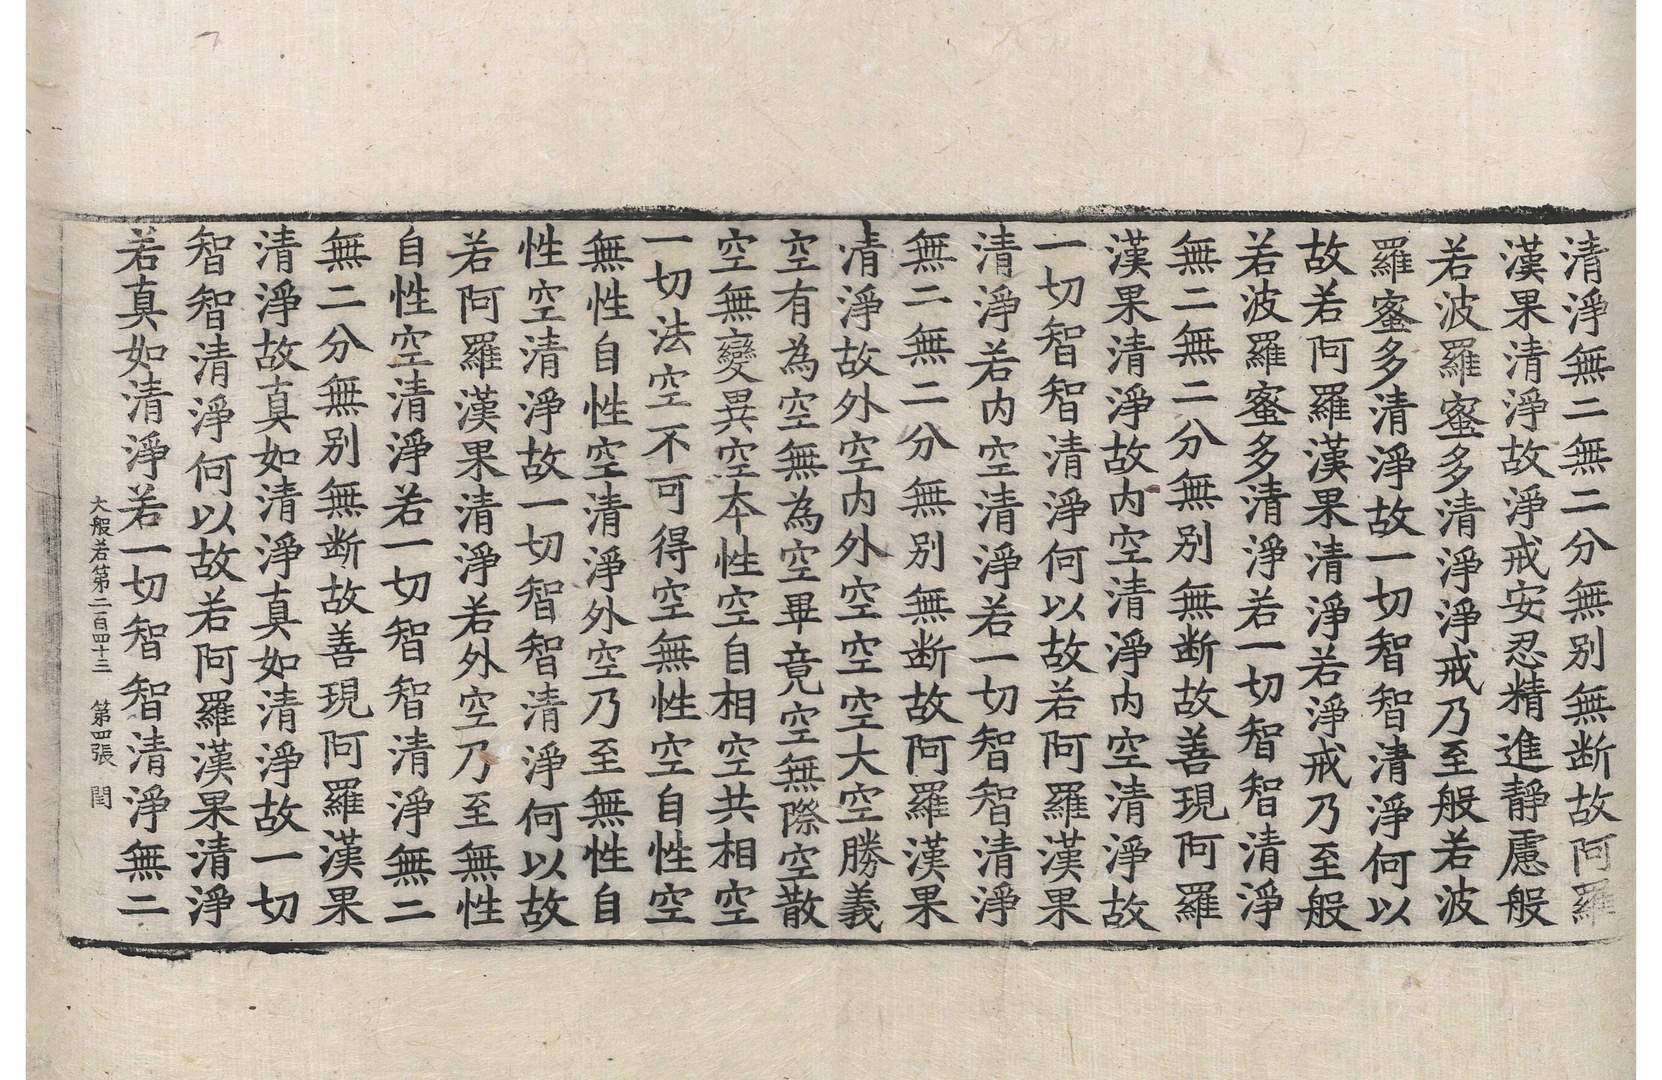 清淨無二無二分無別無断故阿羅
漢果清淨故淨戒安忍精進靜慮般
若波羅蜜多清淨淨戒乃至般若波
羅蜜多清淨故一切智智清淨何以
故若阿羅漢果清淨若淨戒乃至般
若波羅蜜多清淨若一切智智清淨
無二無二分無別無断故善現阿羅
漢果清淨故内空清淨内空清淨故
一切智智清淨何以故若阿羅漢果
清淨若内空清淨若一切智智清淨
無二無二分無別無断故阿羅漢果
清淨故外空内外空空空大空勝義
空有為空無為空畢竟空無際空散
空無變異空本性空自相空共相空
一切法空不可得空無性空自性空
無性自性空清淨外空乃至無性自
性空清淨故一切智智清淨何以故
若阿羅漢果清淨若外空乃至無性
自性空清淨若一切智智清淨無二
無二分無別無断故善現阿羅漢果
清淨故真如清淨真如清淨故一切
智智清淨何以故若阿羅漢果清淨
若真如清淨若一切智智清淨無二
大般若第二百四十三 第四張 閏